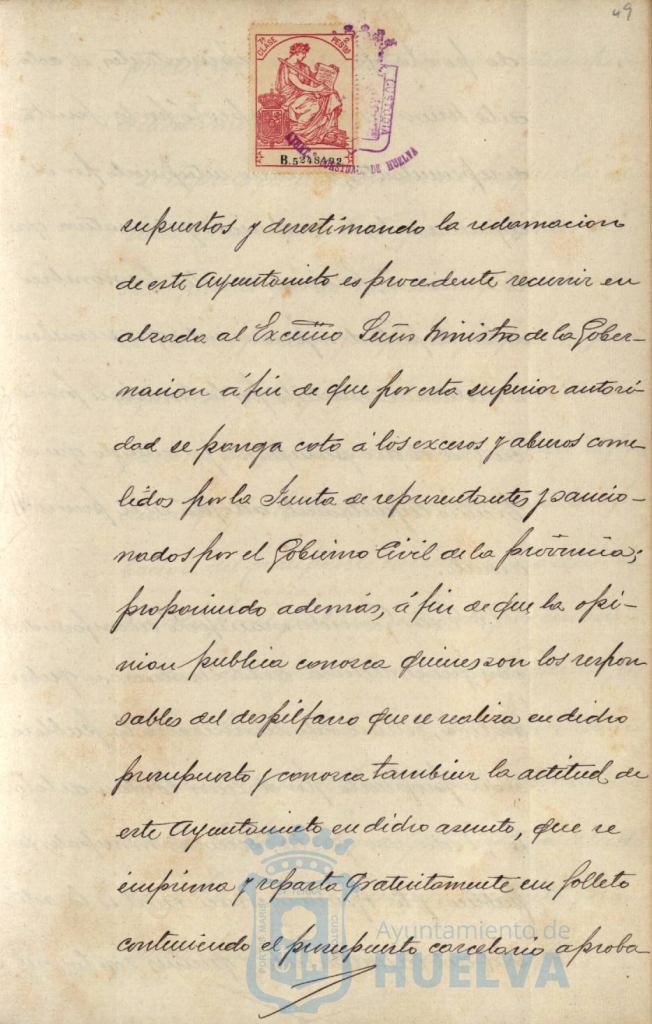 49
7ª CLASE
2 PESETAS
B.5248492
CUSTODIA
DE HUELVA
supuestos y desestimando la reclamacion
de este Ayuntamiento es procedente recurrir en
alzada al Excmo Señor Ministro de la Gober-
nacion á fin de que por esta superior autori-
dad se ponga coto á los excesos y abusos come-
tidos por la Junta de representantes y sancio-
nados por el Gobierno Civil de la provincia;
proponiendo además, á fin de que la opi-
nion publica conosca quienes son los respon
sables del despilfarro que se realiza en dicho
presupuesto y conosca tambien la actitud de
este Ayuntamiento en dicho asunto, que se
imprima y reparta gratuitamente un folleto
conteniendo el presupuesto carcelario aproba
Ayuntamiento de
HUELVA